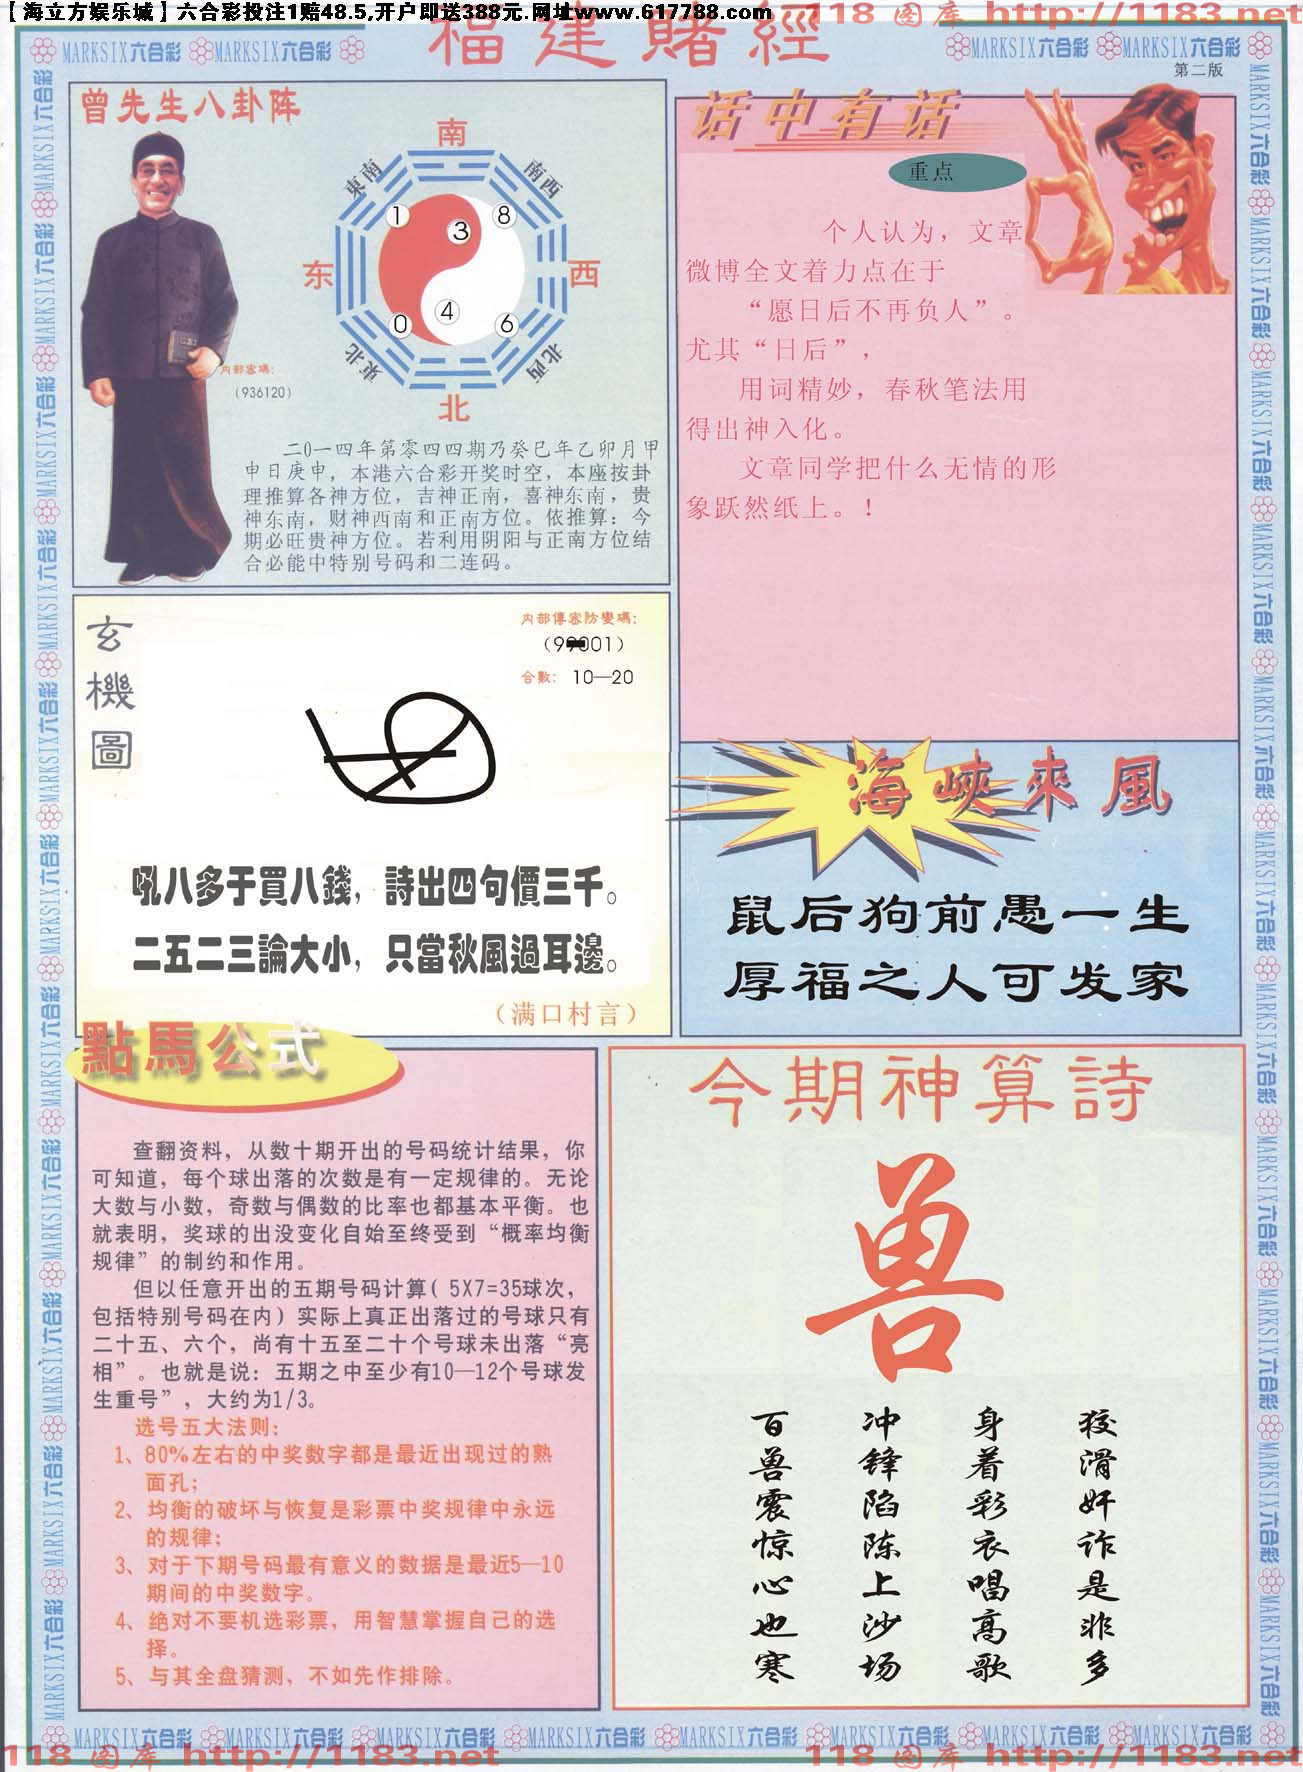 【海立方娱乐城】六合彩投注1赔48.5,开户即送388元.网址www.617788.com
118 图库 http://1183.net
福建賭經
MARKSIX六合彩 MARKSIX六合彩
MARKSIX六合彩 MARKSIX六合彩
第二版
曾先生八卦阵
南
東南
南西
1
8
3
东
西
4
0
6
東北
北西
北
内部密碼:
(936120)
二0一四年第零四四期乃癸巳年乙卯月甲
申日庚申，本港六合彩开奖时空，本座按卦
理推算各神方位，吉神正南，喜神东南，贵
神东南，财神西南和正南方位。依推算：今
期必旺贵神方位。若利用阴阳与正南方位结
合必能中特别号码和二连码。
话中有话
重点
个人认为，文章
微博全文着力点在于
“愿日后不再负人”。
尤其“日后”，
用词精妙，春秋笔法用
得出神入化。
文章同学把什么无情的形
象跃然纸上。！
玄機圖
内部傳密防變碼:
合數: 10—20
吼八多于買八錢，詩出四句價三千。
二五二三論大小，只當秋風過耳邊。
（满口村言）
海峽來風
鼠后狗前愚一生
厚福之人可发家
點馬公式
查翻资料，从数十期开出的号码统计结果，你
可知道，每个球出落的次数是有一定规律的。无论
大数与小数，奇数与偶数的比率也都基本平衡。也
就表明，奖球的出没变化自始至终受到“概率均衡
规律”的制约和作用。
但以任意开出的五期号码计算（5X7=35球次，
包括特别号码在内）实际上真正出落过的号球只有
二十五、六个，尚有十五至二十个号球未出落“亮
相”。也就是说：五期之中至少有10—12个号球发
生重号”，大约为1/3。
选号五大法则:
1、80%左右的中奖数字都是最近出现过的熟
面孔;
2、均衡的破坏与恢复是彩票中奖规律中永远
的规律;
3、对于下期号码最有意义的数据是最近5—10
期间的中奖数字。
4、绝对不要机选彩票，用智慧掌握自己的选
择。
5、与其全盘猜测，不如先作排除。
今期神算詩
兽
百兽震惊心也寒
冲锋陷陈上沙场
身着彩衣唱高歌
狡滑奸诈是非多
MARKSIX六合彩 MARKSIX六合彩 MARKSIX六合彩 MARKSIX六合彩 MARKSIX六合彩 MARKSIX六合彩 MARKSIX六合彩 MARKSIX六合彩
118 图库 http://1183.net
118 图库 http://1183.net